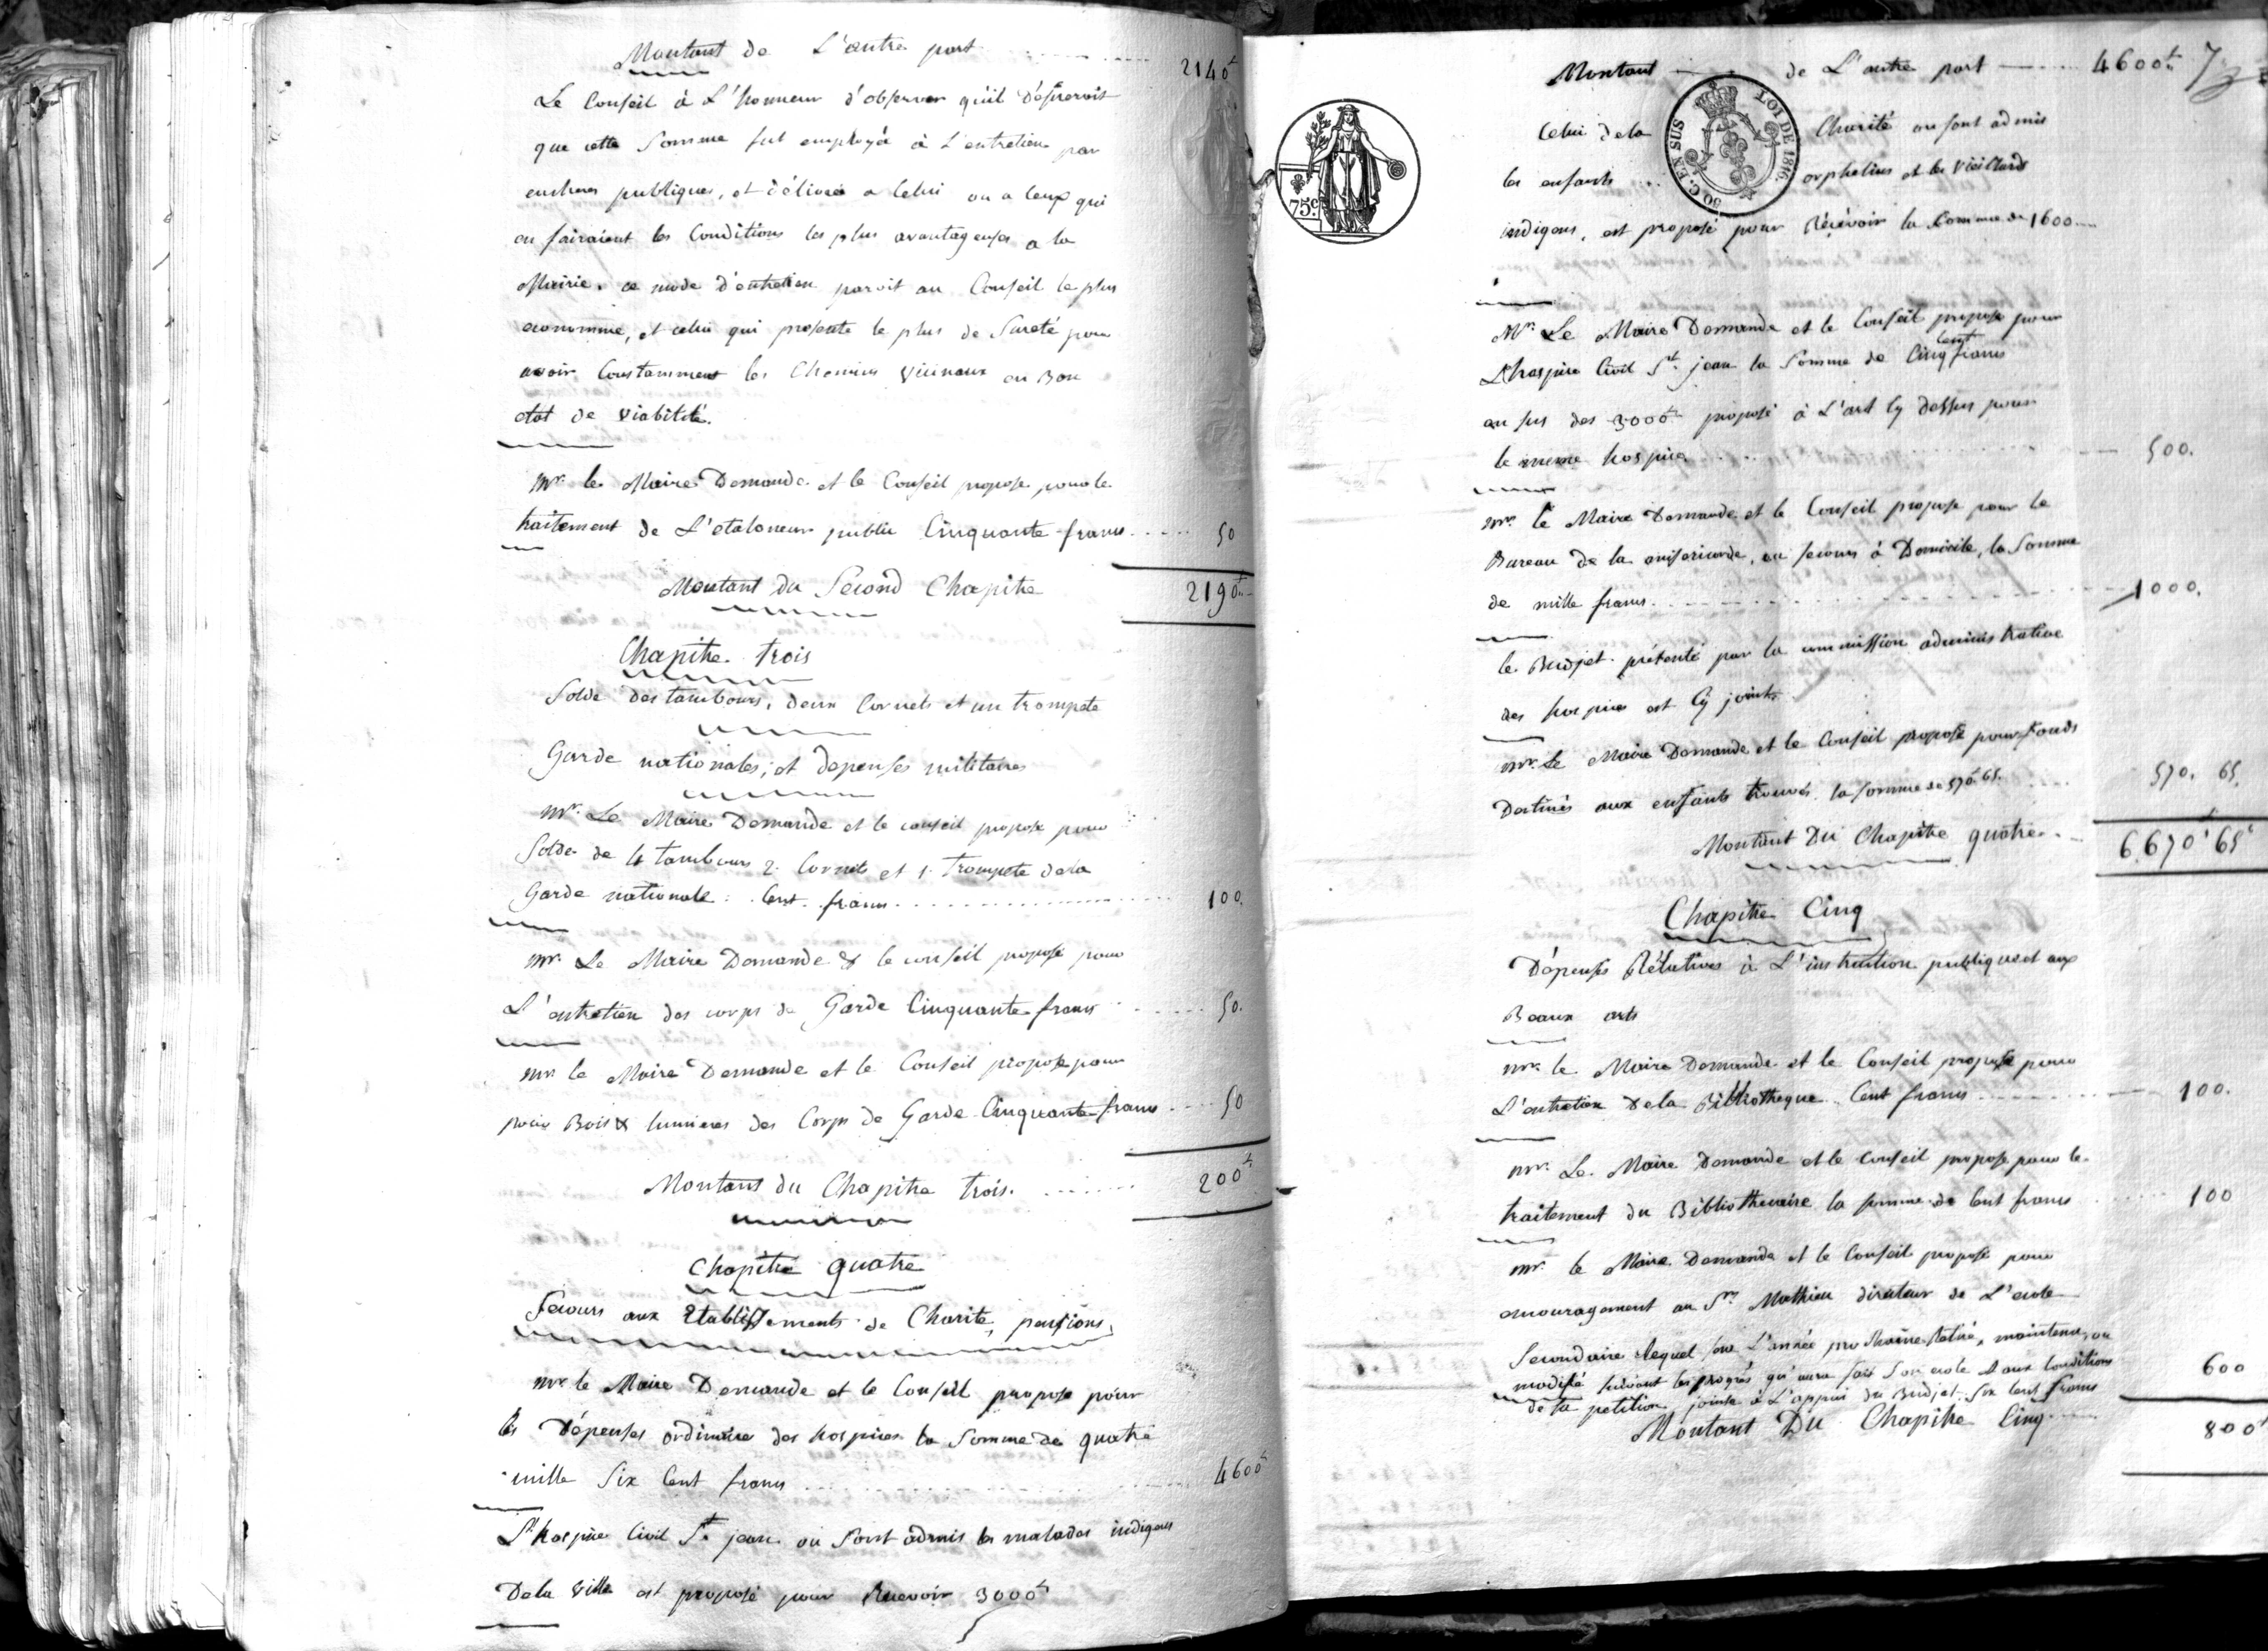 Montant de L'autre part ...... 2140ᵗ
Le Conseil à L'honneur d'observer qu'il désireroit
que cette Somme fut employé à L'entretien par
encheres publiques, et délivrée a Celui ou a Ceux qui
en fairaient les Conditions les plus avantageuses a la
Mairie. ce mode d'entretien paroit au Conseil le plus
economme, et celui qui présente le plus de Sureté pour
avoir Constamment les Chemins Vicinaux en Bon
etat de viabilité.
mr. le Maire Demande et le Conseil propose pour le
traitement de L'etaloneur public Cinquante francs ..... 50
Montant du Second Chapitre 2190ᵗ
Chapitre trois
Solde des tambours, deux Cornets et un trompete
Garde nationales, et depenses militaires
Mr. Le Maire Demande et le conseil propose pour
Solde de 4 tambours 2. Cornets et 1. trompete de la
Garde nationale : Cent francs .......... 100.
mr. Le Maire Demande & le conseil propose pour
L'entretien des corps de Garde Cinquante francs ..... 50.
mr. le Maire Demande et le Conseil propose pour
pour Bois & lumieres des Corps de Garde Cinquante francs .... 50
Montant du Chapitre trois. ....... 200ᵗ
Chapitre quatre
Secours aux Etablissements de Charité, pensions,
mr. le Maire Demande et le Conseil propose pour
les Dépenses ordinaires des hospices la Somme de quatre
mille Six Cent francs .......... 4600ᵗ
L'hospice Civil St. jean ou Sont admis les malades indigens
De la ville est proposé pour Recevoir 3000ᵗ
Montant de L'autre part ..... 4600ᵗ 7
75c.
50 C. EN SUS
LOI DE 1816.
Celui de la Charité ou sont admis
les enfants orphelins et les vieillards
indigens, est proposé pour Récévoir la Somme de 1600
Mr. Le Maire Demande et le Conseil propose pour
L'hospice Civil St. jean la Somme de Cinq Cent francs
en sus des 3000ᵗ proposé à L'art Cy dessus pour
le meme hospice ..... 500.
mr. le Maire Demande et le Conseil propose pour le
Bureau de la misericorde, ou secours à Domicile, la Somme
de mille francs .......... 1000.
le Budjet présenté par la commission administrative
des hospices est Cy joint.
mr. Le Maire Demande et le Conseil propose pour fonds
Destinés aux enfants trouvés la somme de 570ᶠ 65. 570. 65.
Montant Du Chapitre quatre .. 6,670ᶠ 65ᶜ
Chapitre Cinq
Dépenses Rélatives à L'instruction publique et aux
Beaux arts
mr. le Maire Demande et le Conseil propose pour
L'entretien De la Bibliotheque Cent francs ........ 100.
mr. Le Maire Demande et le Conseil propose pour le
traitement du Bibliothecaire la somme de Cent francs ..... 100
mr. le Maire Demande et le Conseil propose pour
encouragement au Sr. Mathieu directeur de L'ecole
Secondaire lequel sera L'année prochaine retiré, maintenu, ou
modifié suivant les progrès qu'aura fait son ecole & aux Conditions 600
de la petition jointe à L'appui du Budjet Six Cent francs
Montant Du Chapitre Cinq ..... 800ᵗ